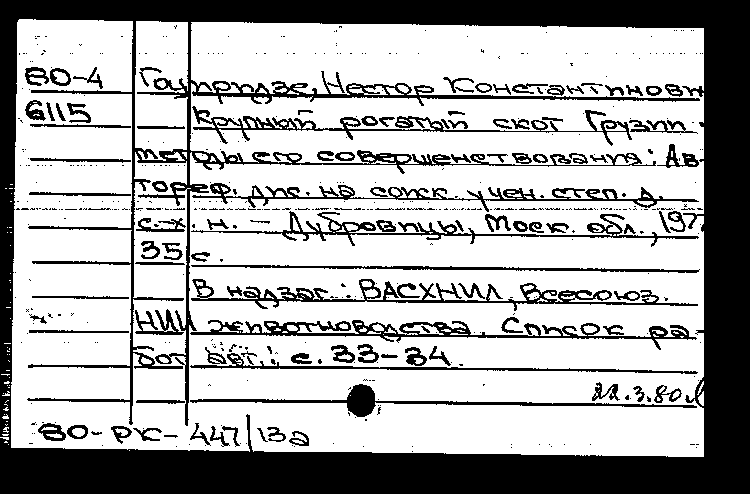 80-4 Гоциридзе, Нестор Константинови
6115 Крупный рогатый скот Грузии
методы его совершенствования: Ав-
тореф. дис. на соиск. учен. степ. д.
с.-х. н. - Дубровицы, Моск. обл., 197
35 с.
В надзаг.: ВАСХНИЛ, Всесоюз.
НИИ животноводства. Список ра-
бот авт.: с. 33-34.
22.3.80
80-РК-447/13а